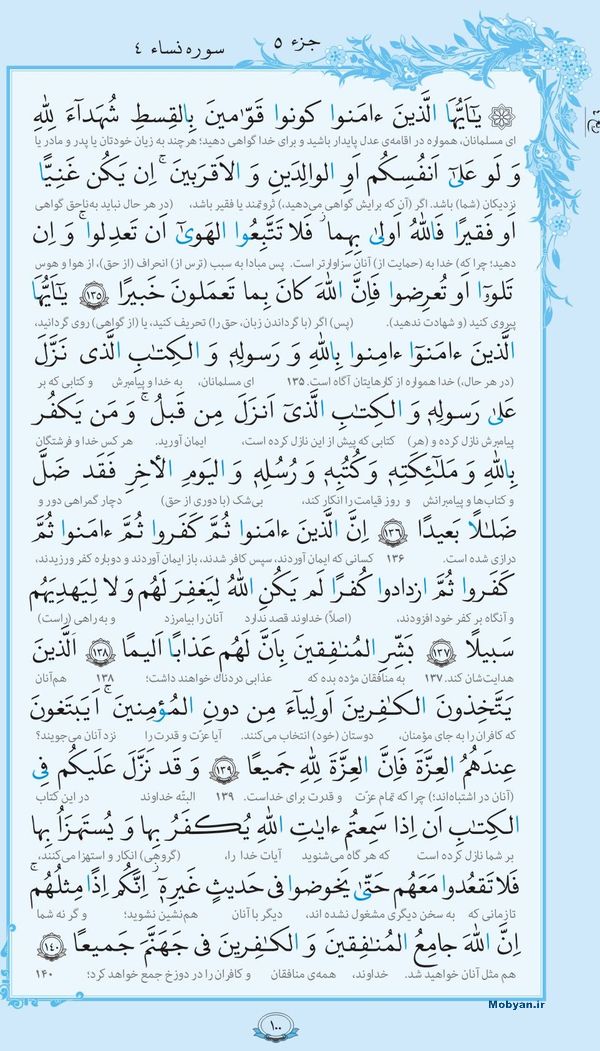 جزء ۵
سوره نساء ۴
يٰٓاَيُّهَا الَّذينَ ءامَنوا كونوا قَوّٰمينَ بِالقِسطِ شُهَدآءَ لِلّٰهِ
ای مسلمانان، همواره در اقامه‌ی عدل پایدار باشید و برای خدا گواهی دهید؛ هرچند به زیان خودتان یا پدر و مادر یا
وَ لَو عَلىٰٓ اَنفُسِكُم اَوِ الوالِدَينِ وَ الاَقرَبينَۚ اِن يَكُن غَنِيًّا
نزدیکان (شما) باشد. اگر (آن که برایش گواهی می‌دهید،) ثروتمند یا فقیر باشد، (در هر حال نباید به‌ناحق گواهی
اَو فَقيرًا فَاللّٰهُ اَولىٰ بِهِماۖ فَلا تَتَّبِعُوا الهَوىٰٓ اَن تَعدِلواۚ وَ اِن
دهید؛ چرا که) خدا به (حمایت از) آنان سزاوارتر است. پس مبادا به سبب (ترس از) انحراف (از حق)، از هوا و هوس
تَلوۥٓا اَو تُعرِضوا فَاِنَّ اللّٰهَ كانَ بِما تَعمَلونَ خَبيرًا ﴿۱۳۵﴾ يٰٓاَيُّهَا
پیروی کنید (و شهادت ندهید). (پس) اگر (با گرداندن زبان، حق را) تحریف کنید، یا (از گواهی) روی گردانید،
الَّذينَ ءامَنوٓا ءامِنوا بِاللّٰهِ وَ رَسولِهٖ وَ الكِتٰبِ الَّذى نَزَّلَ
(در هر حال،) خدا همواره از کارهایتان آگاه است. ۱۳۵ ای مسلمانان، به خدا و پیامبرش و کتابی که بر
عَلىٰ رَسولِهٖ وَ الكِتٰبِ الَّذىٓ اَنزَلَ مِن قَبلُۚ وَ مَن يَكفُر
پیامبرش نازل کرده و (هر) کتابی که پیش از این نازل کرده است، ایمان آورید. هر کس خدا و فرشتگان
بِاللّٰهِ وَ مَلٰٓئِكَتِهٖ وَ كُتُبِهٖ وَ رُسُلِهٖ وَ اليَومِ الأخِرِ فَقَد ضَلَّ
و کتاب‌ها و پیامبرانش و روز قیامت را انکار کند، بی‌شک (با دوری از حق) دچار گمراهی دور و
ضَلٰلًا بَعيدًا ﴿۱۳۶﴾ اِنَّ الَّذينَ ءامَنوا ثُمَّ كَفَروا ثُمَّ ءامَنوا ثُمَّ
درازی شده است. ۱۳۶ کسانی که ایمان آوردند، سپس کافر شدند، باز ایمان آوردند و دوباره کفر ورزیدند،
كَفَروا ثُمَّ ازدادوا كُفرًا لَم يَكُنِ اللّٰهُ لِيَغفِرَ لَهُم وَ لا لِيَهدِيَهُم
و آنگاه بر کفر خود افزودند، (اصلاً) خداوند قصد ندارد آنان را بیامرزد و به راهی (راست)
سَبيلًا ﴿۱۳۷﴾ بَشِّرِ المُنٰفِقينَ بِاَنَّ لَهُم عَذابًا اَليمًا ﴿۱۳۸﴾ اَلَّذينَ
هدایت‌شان کند. ۱۳۷ به منافقان مژده بده که عذابی دردناک خواهند داشت؛ ۱۳۸ هم‌آنان
يَتَّخِذونَ الكٰفِرينَ اَولِيآءَ مِن دونِ المُؤمِنينَۚ اَيَبتَغونَ
که کافران را به جای مؤمنان، دوستان (خود) انتخاب می‌کنند. آیا عزّت و قدرت را نزد آنان می‌جویند؟
عِندَهُمُ العِزَّةَ فَاِنَّ العِزَّةَ لِلّٰهِ جَميعًا ﴿۱۳۹﴾ وَ قَد نَزَّلَ عَلَيكُم فِى
(آنان در اشتباه‌اند؛) چرا که تمام عزّت و قدرت برای خداست. ۱۳۹ البتّه خداوند در این کتاب
الكِتٰبِ اَن اِذا سَمِعتُم ءايٰتِ اللّٰهِ يُكفَرُ بِها وَ يُستَهزَاُ بِها
بر شما نازل کرده است که هر گاه می‌شنوید آیات خدا را، (گروهی) انکار و استهزا می‌کنند،
فَلا تَقعُدوا مَعَهُم حَتّىٰ يَخوضوا فى حَديثٍ غَيرِهٖۚ اِنَّكُم اِذًا مِثلُهُمۗ
تازمانی که به سخن دیگری مشغول نشده اند، دیگر با آنان هم‌نشین نشوید؛ و گر نه شما
اِنَّ اللّٰهَ جامِعُ المُنٰفِقينَ وَ الكٰفِرينَ فى جَهَنَّمَ جَميعًا ﴿۱۴۰﴾
هم مثل آنان خواهید شد. خداوند، همه‌ی منافقان و کافران را در دوزخ جمع خواهد کرد؛ ۱۴۰
Mobyan.ir
۱۰۰